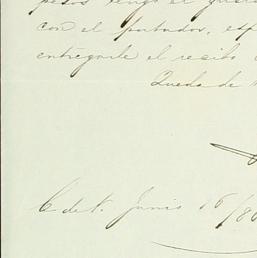 pesos tengo el gusto
con el portador, esp
entregarle el recibo
Queda de
C de V. Junio 16/86